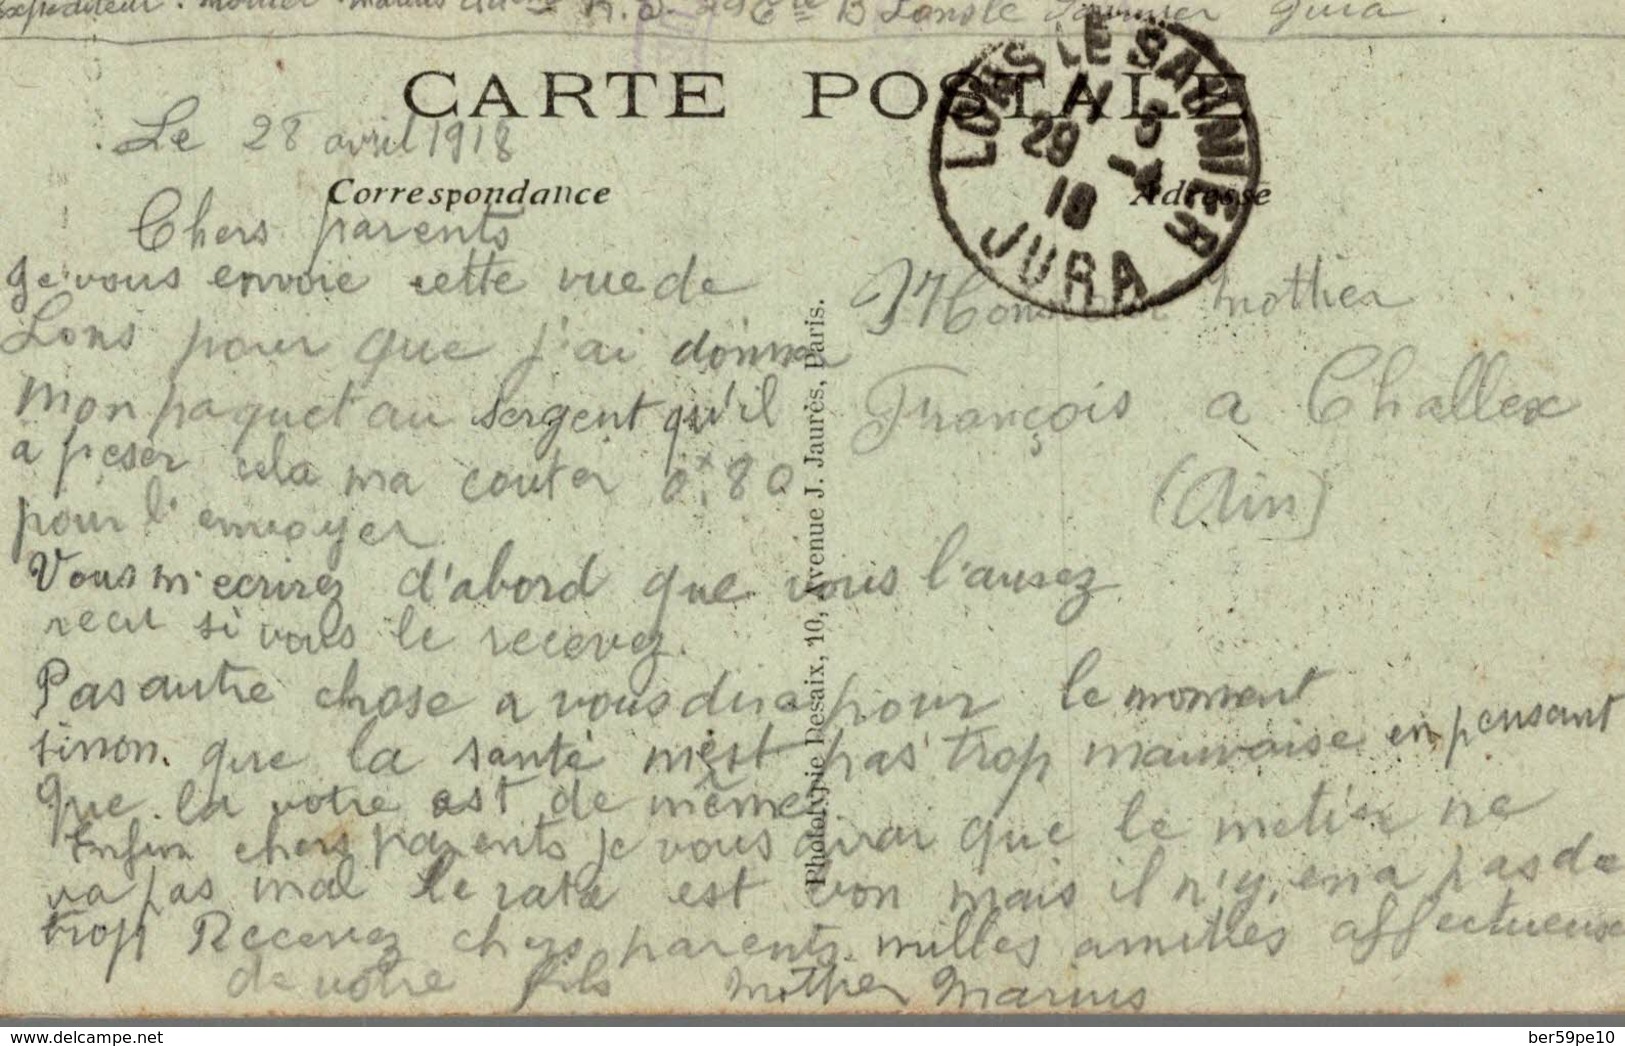 Expediteur. Mottier Marius 44eme R.I. 29 Cie B Lons le Saunier Jura.
CARTE POSTALE
LONS LE SAUNIER
29 - 4
18
JURA
Le 28 avril 1918
Correspondance
Adresse
Chers parents
Je vous envoie cette vue de
Lons pour que j'ai donner
mon paquet au sergent qu'il
a peser cela ma couter 0f,80
pour l'envoyer
Monsieur Mottier
François a Challex
(Ain)
Vous m'ecrirez d'abord que vous l'aurez
recu si vous le recevez.
Pas autre chose a vous dire pour le moment
sinon que la santé n'est pas trop mauvaise en pensant
que la votre est de même
Enfin chers parents je vous dirai que le metier ne
va pas mal le rata est bon mais il n'y en a pas de
trop Recevez chers parents milles amitiés affectueuse
de votre fils Mottier Marius
Phototypie Desaix, 10, Avenue J. Jaurès, Paris.
delcampe.net
ber59pe10